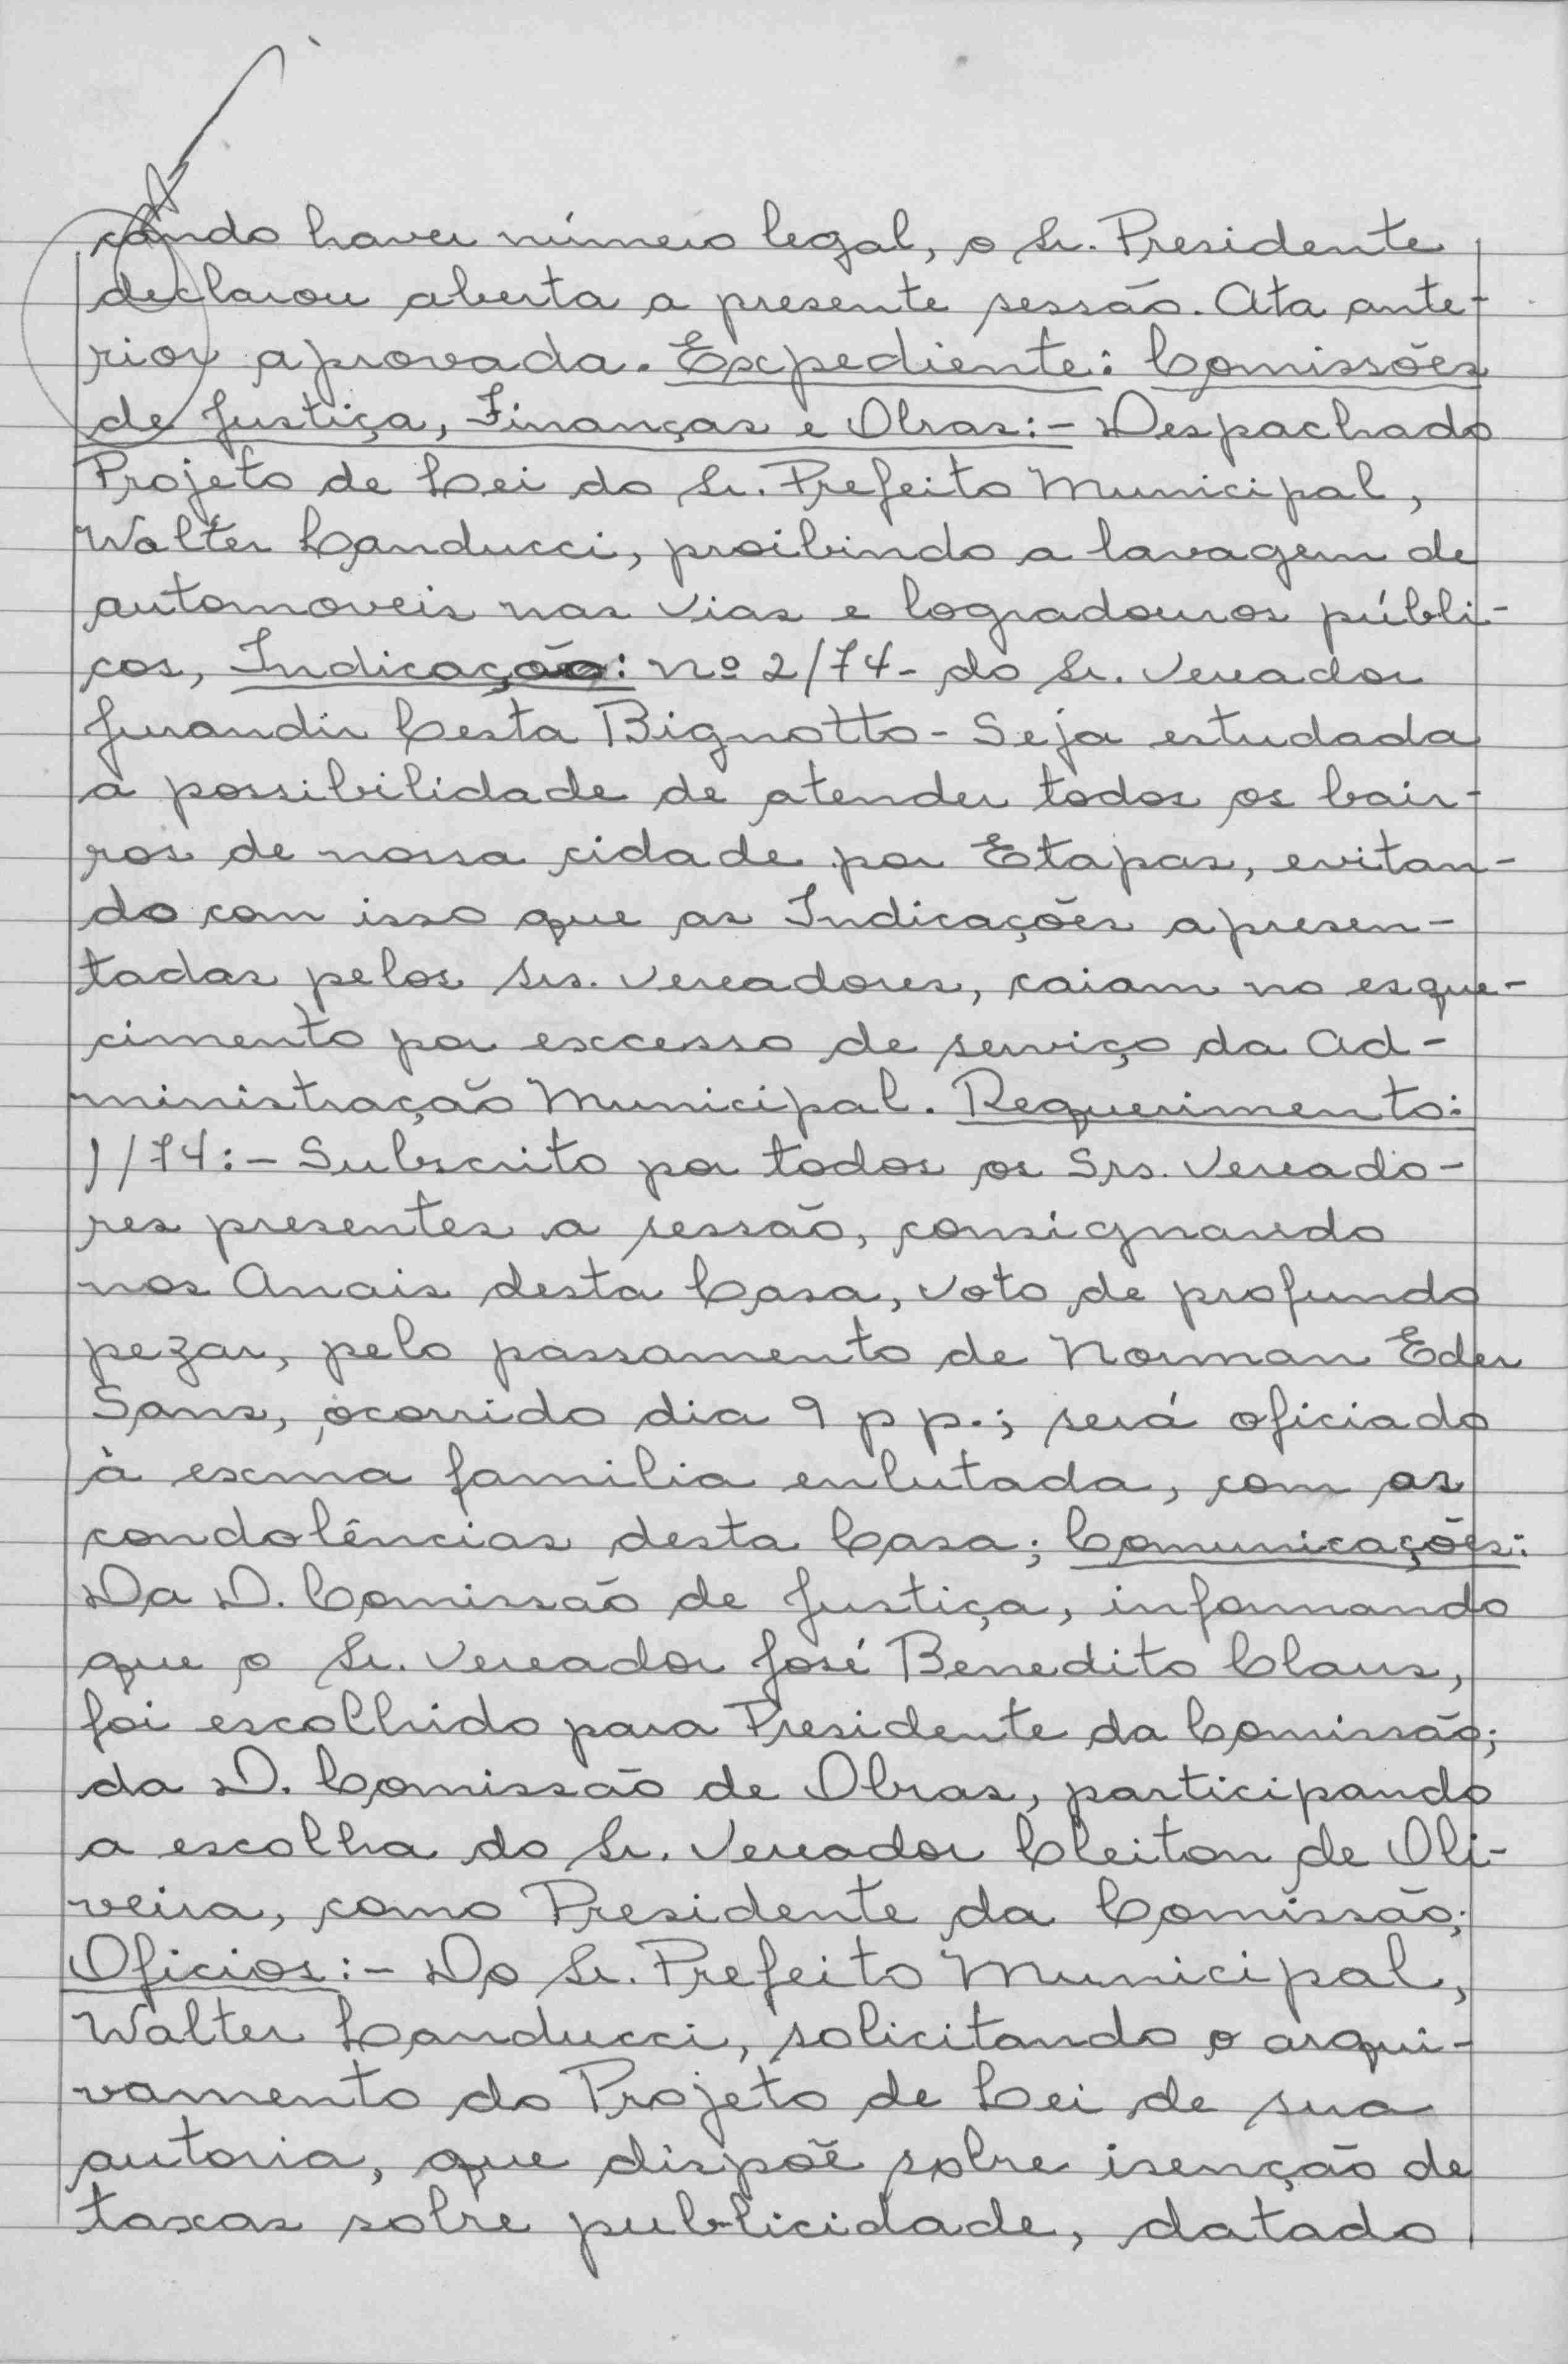 cando haver número legal, o Sr. Presidente
declarou aberta a presente sessão. Ata ante-
rior aprovada. Expediente: Comissões
de Justiça, Finanças e Obras:- Despachado
Projeto de Lei do Sr. Prefeito Municipal,
Walter Canducci, proibindo a lavagem de
automoveis nas vias e logradouros públi-
cos, Indicação: nº 2/74- do Sr. Vereador
Jurandir Cesta Bignotto- Seja estudada
a possibilidade de atender todos os bair-
ros de nossa cidade por Etapas, evitan-
do com isso que as Indicações apresen-
tadas pelos Srs. Vereadores, caiam no esque-
cimento por excesso de serviço da Ad-
ministração Municipal. Requerimento:
1/74:- Subscrito por todos os Srs. Vereado-
res presentes a sessão, consignando
nos Anais desta Casa, voto de profundo
pezar, pelo passamento de Norman Eder
Sans, ocorrido dia 9 p p.; será oficiado
à exma familia enlutada, com as
condolências desta Casa; Comunicações:
Da D. Comissão de Justiça, informando
que o Sr. Vereador José Benedito Claus,
foi escolhido para Presidente da Comissão;
da D. Comissão de Obras, participando
a escolha do Sr. Vereador Cleiton de Oli-
veira, como Presidente da Comissão;
Oficios:- Do Sr. Prefeito Municipal,
Walter Canducci, solicitando o arqui-
vamento do Projeto de Lei de sua
autoria, que dispõe sobre isenção de
taxas sobre publicidade, datado